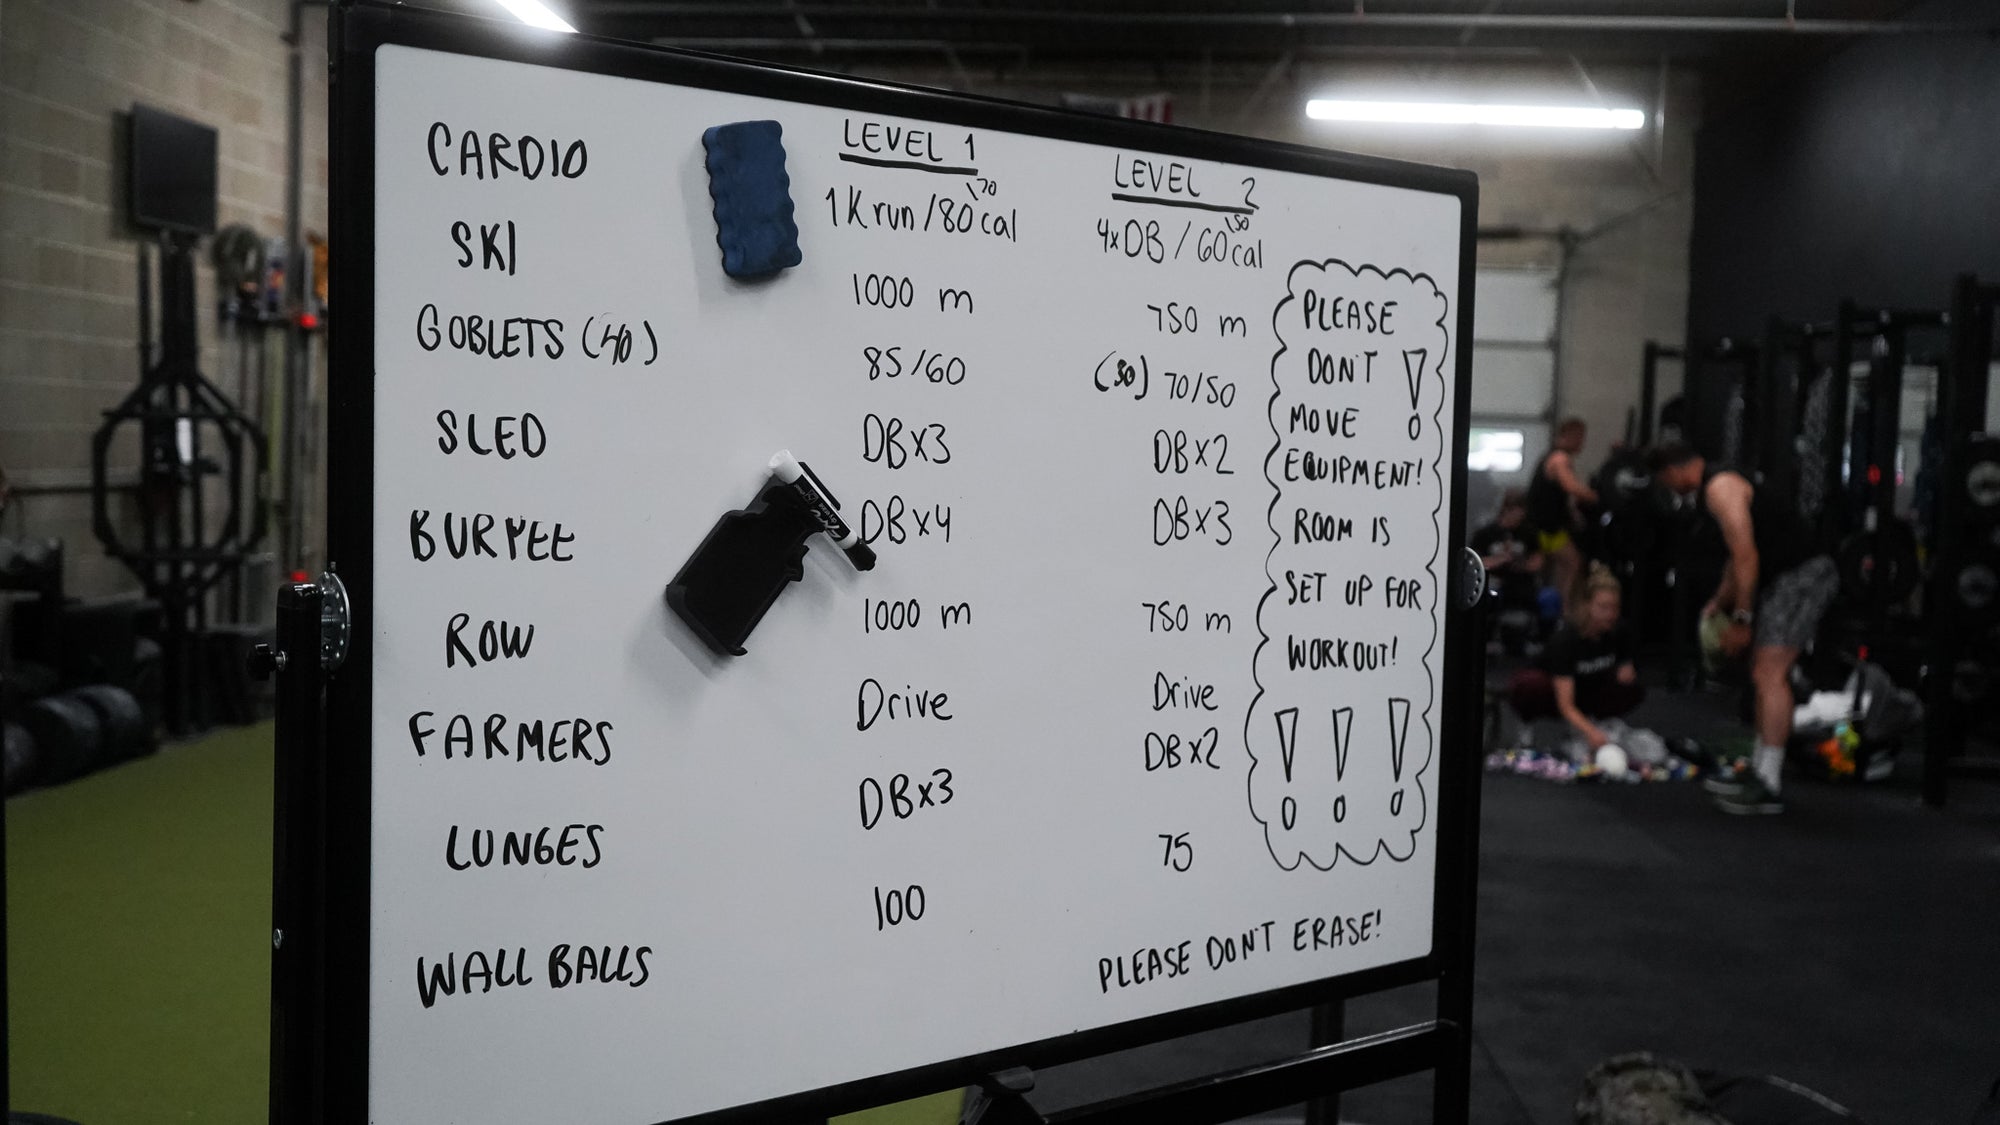 CARDIO
SKI
GOBLETS (40)
SLED
BURPEE
ROW
FARMERS
LUNGES
WALL BALLS
LEVEL 1
1K run / 80 cal \70
1000 m
85/60
DBx3
DBx4
1000 m
Drive
DBx3
100
LEVEL 2
4xDB / 60 cal \50
750 m
(50) 70/50
DBx2
DBx3
750 m
Drive
DBx2
75
PLEASE
DON'T !
MOVE
EQUIPMENT!
ROOM IS
SET UP FOR
WORKOUT!
! ! !
PLEASE DON'T ERASE!